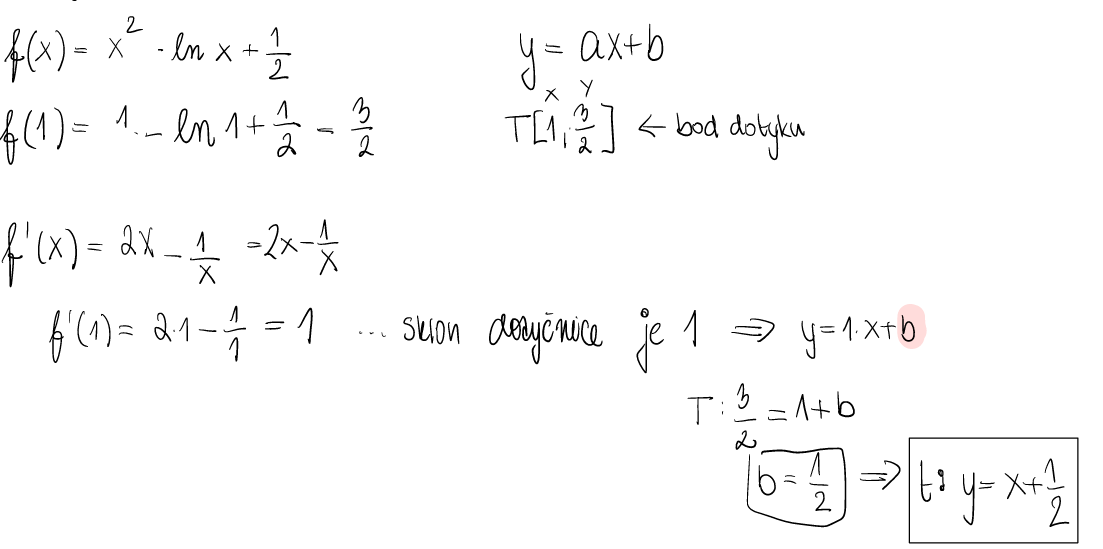 f(x) = x² - ln x + 1/2
y = ax+b
f(1) = 1 - ln 1 + 1/2 = 3/2
x y
T[1; 3/2] ← bod dotyku
f'(x) = 2x - 1/x = 2x - 1/x
f'(1) = 2·1 - 1/1 = 1 ... sklon dotyčnice je 1 ⇒ y = 1·x+b
T: 3/2 = 1+b
b = 1/2 ⇒ t: y = x + 1/2